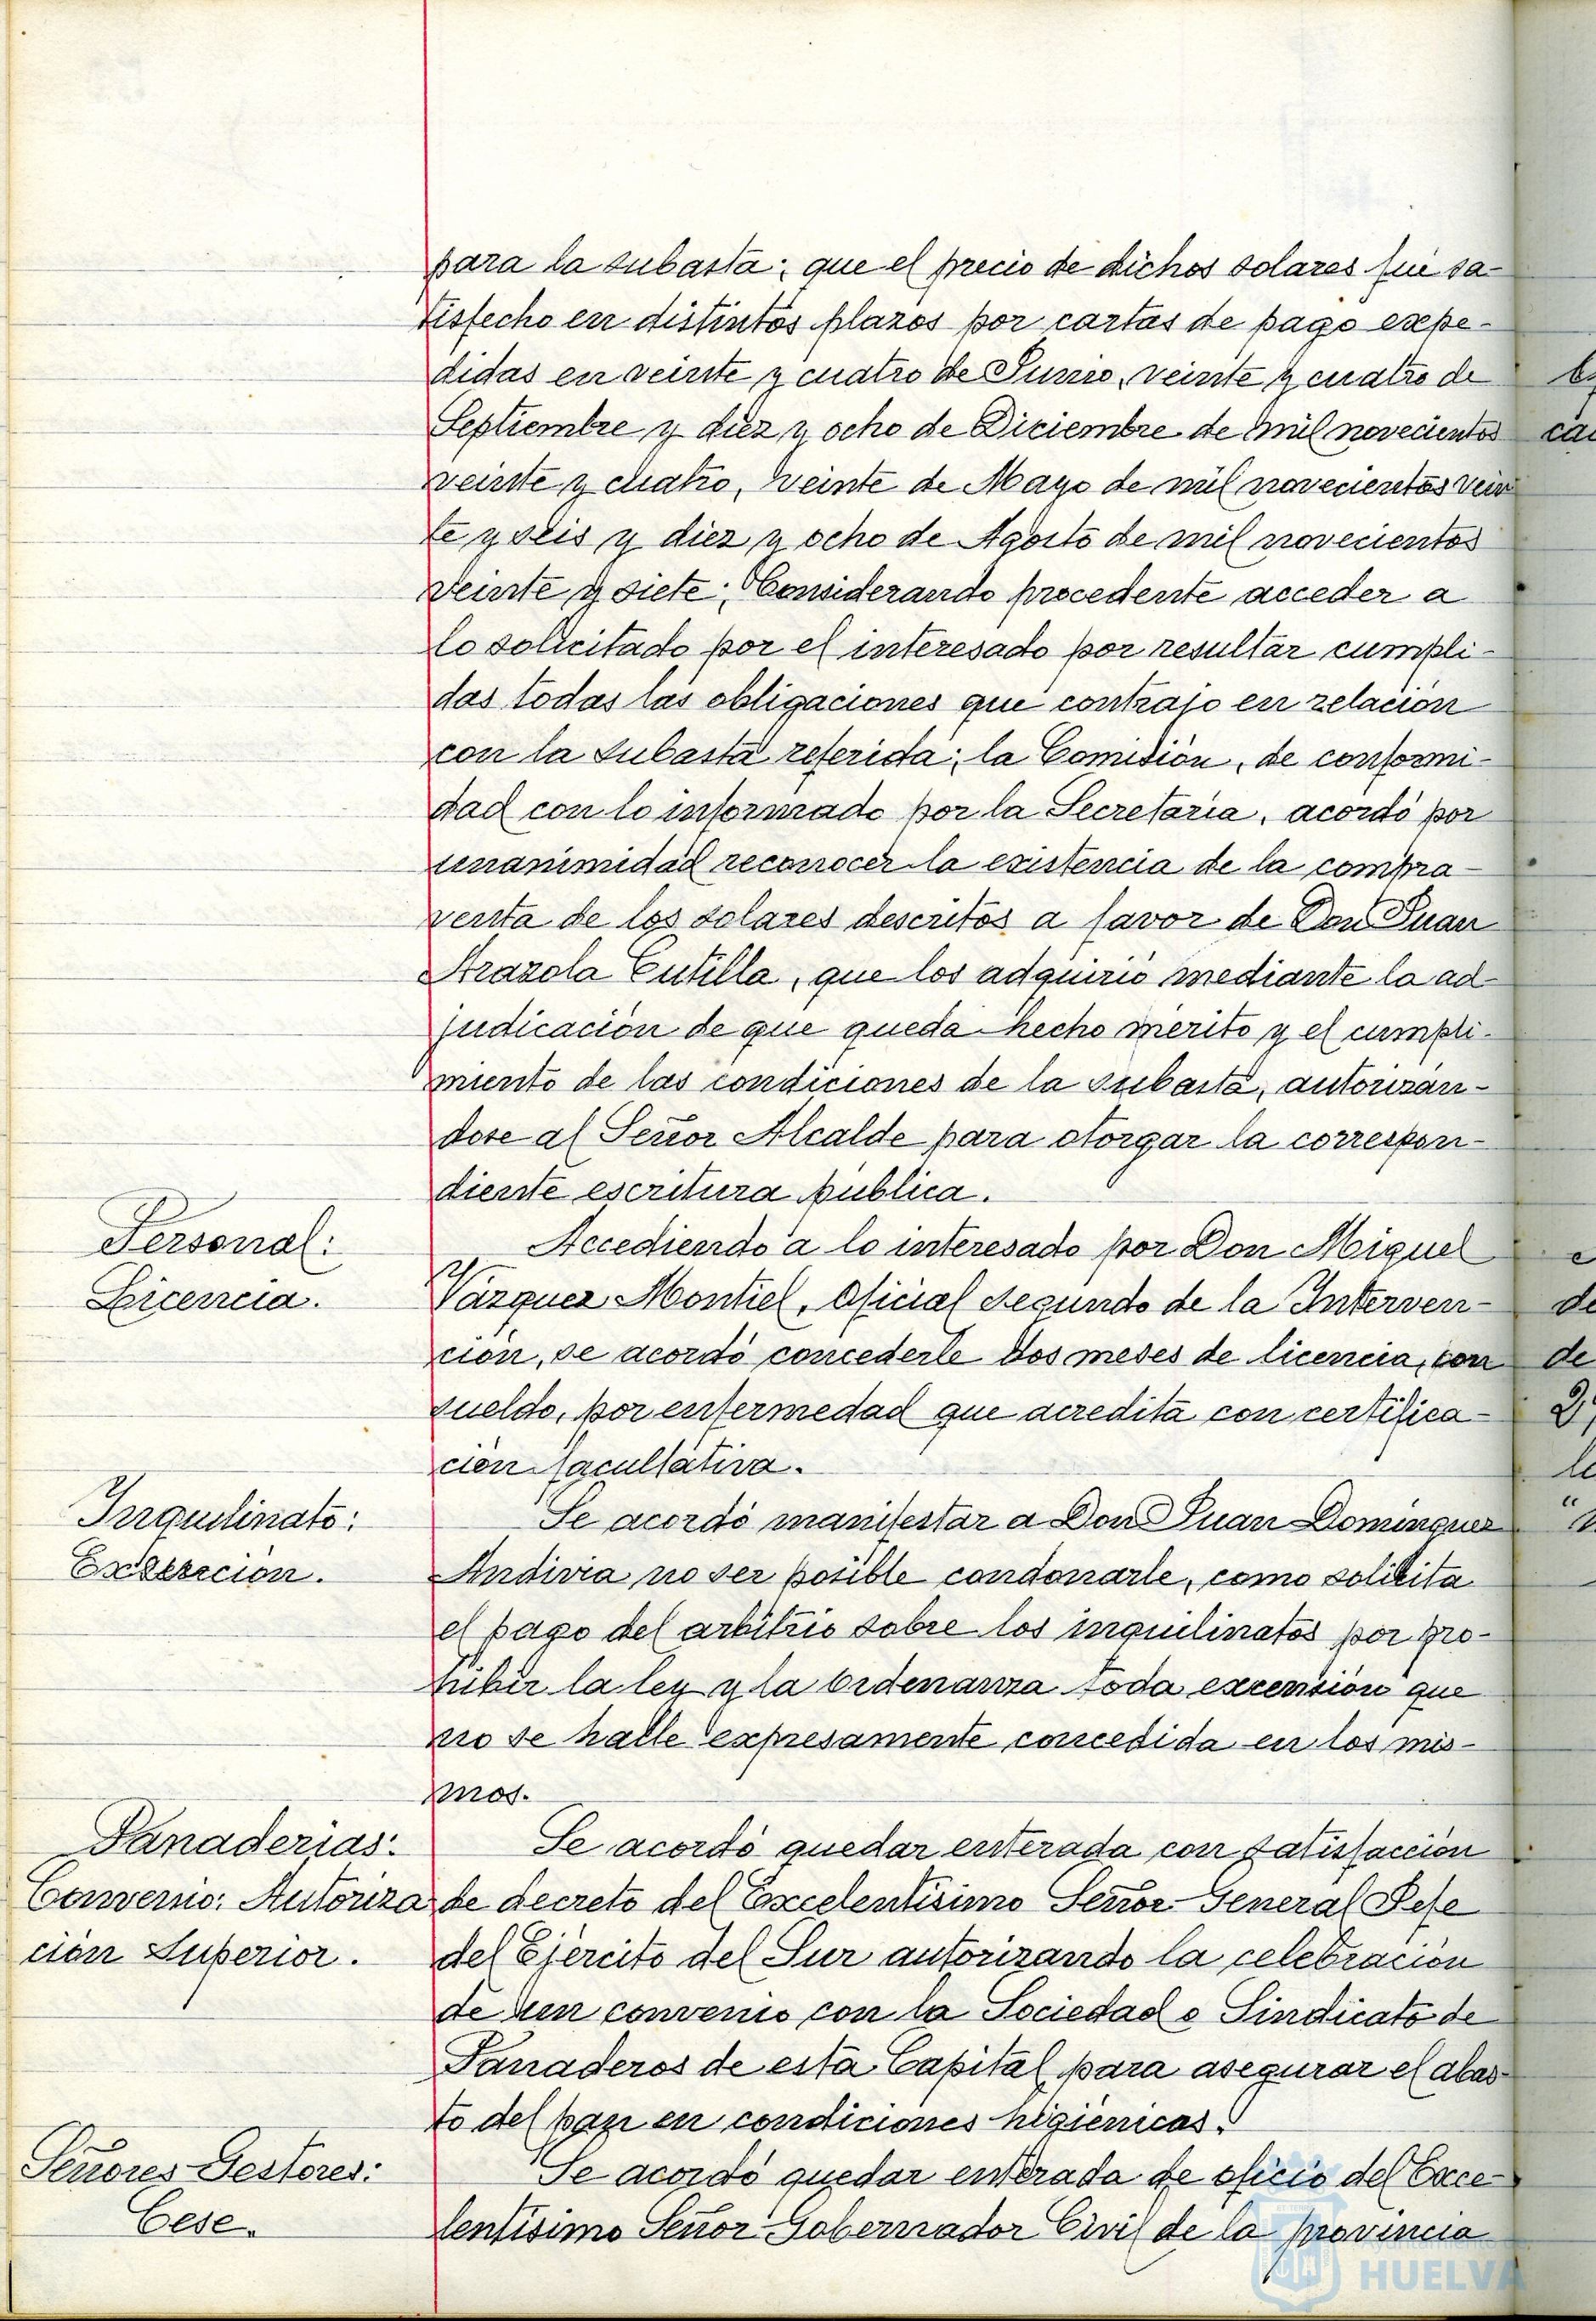 para la subasta; que el precio de dichos solares fue sa-
tisfecho en distintos plazos por cartas de pago expe-
didas en veinte y cuatro de Junio, veinte y cuatro de
Septiembre y diez y ocho de Diciembre de mil novecientos
veinte y cuatro, veinte de Mayo de mil novecientos vein
te y seis y diez y ocho de Agosto de mil novecientos
veinte y siete; Considerando procedente acceder a
lo solicitado por el interesado por resultar cumpli-
das todas las obligaciones que contrajo en relación
con la subasta referida; la Comisión, de conformi-
dad con lo informado por la Secretaria, acordó por
unanimidad reconocer la existencia de la compra-
venta de los solares descritos a favor de Don Juan
Arazola Cutilla, que los adquirió mediante la ad-
judicación de que queda hecho merito y el cumpli-
miento de las condiciones de la subasta, autorizan-
dose al Señor Alcalde para otorgar la correspon-
diente escritura publica.
Personal:
Licencia.
Accediendo a lo interesado por Don Miguel
Vazquez Montiel, Oficial segundo de la Interven-
ción, se acordó concederle dos meses de licencia, con
sueldo, por enfermedad que acredita con certifica-
cion facultativa.
Inquilinato:
Exención.
Se acordó manifestar a Don Juan Dominguez
Andivia no ser posible condonarle, como solicita
el pago del arbitrio sobre los inquilinatos por pro-
hibir la ley y la Ordenanza toda exención que
no se halle expresamente concedida en los mis-
mos.
Panaderias:
Convenio: Autoriza
ción Superior.
Se acordó quedar enterada con satisfacción
de decreto del Excelentisimo Señor General Jefe
del Ejercito del Sur autorizando la celebración
de un convenio con la Sociedad o Sindicato de
Panaderos de esta Capital para asegurar el abas-
to del pan en condiciones higiénicas.
Señores Gestores:
Cese.
Se acordó quedar enterada de oficio del Exce-
lentisimo Señor Gobernador Civil de la provincia
HUELVA